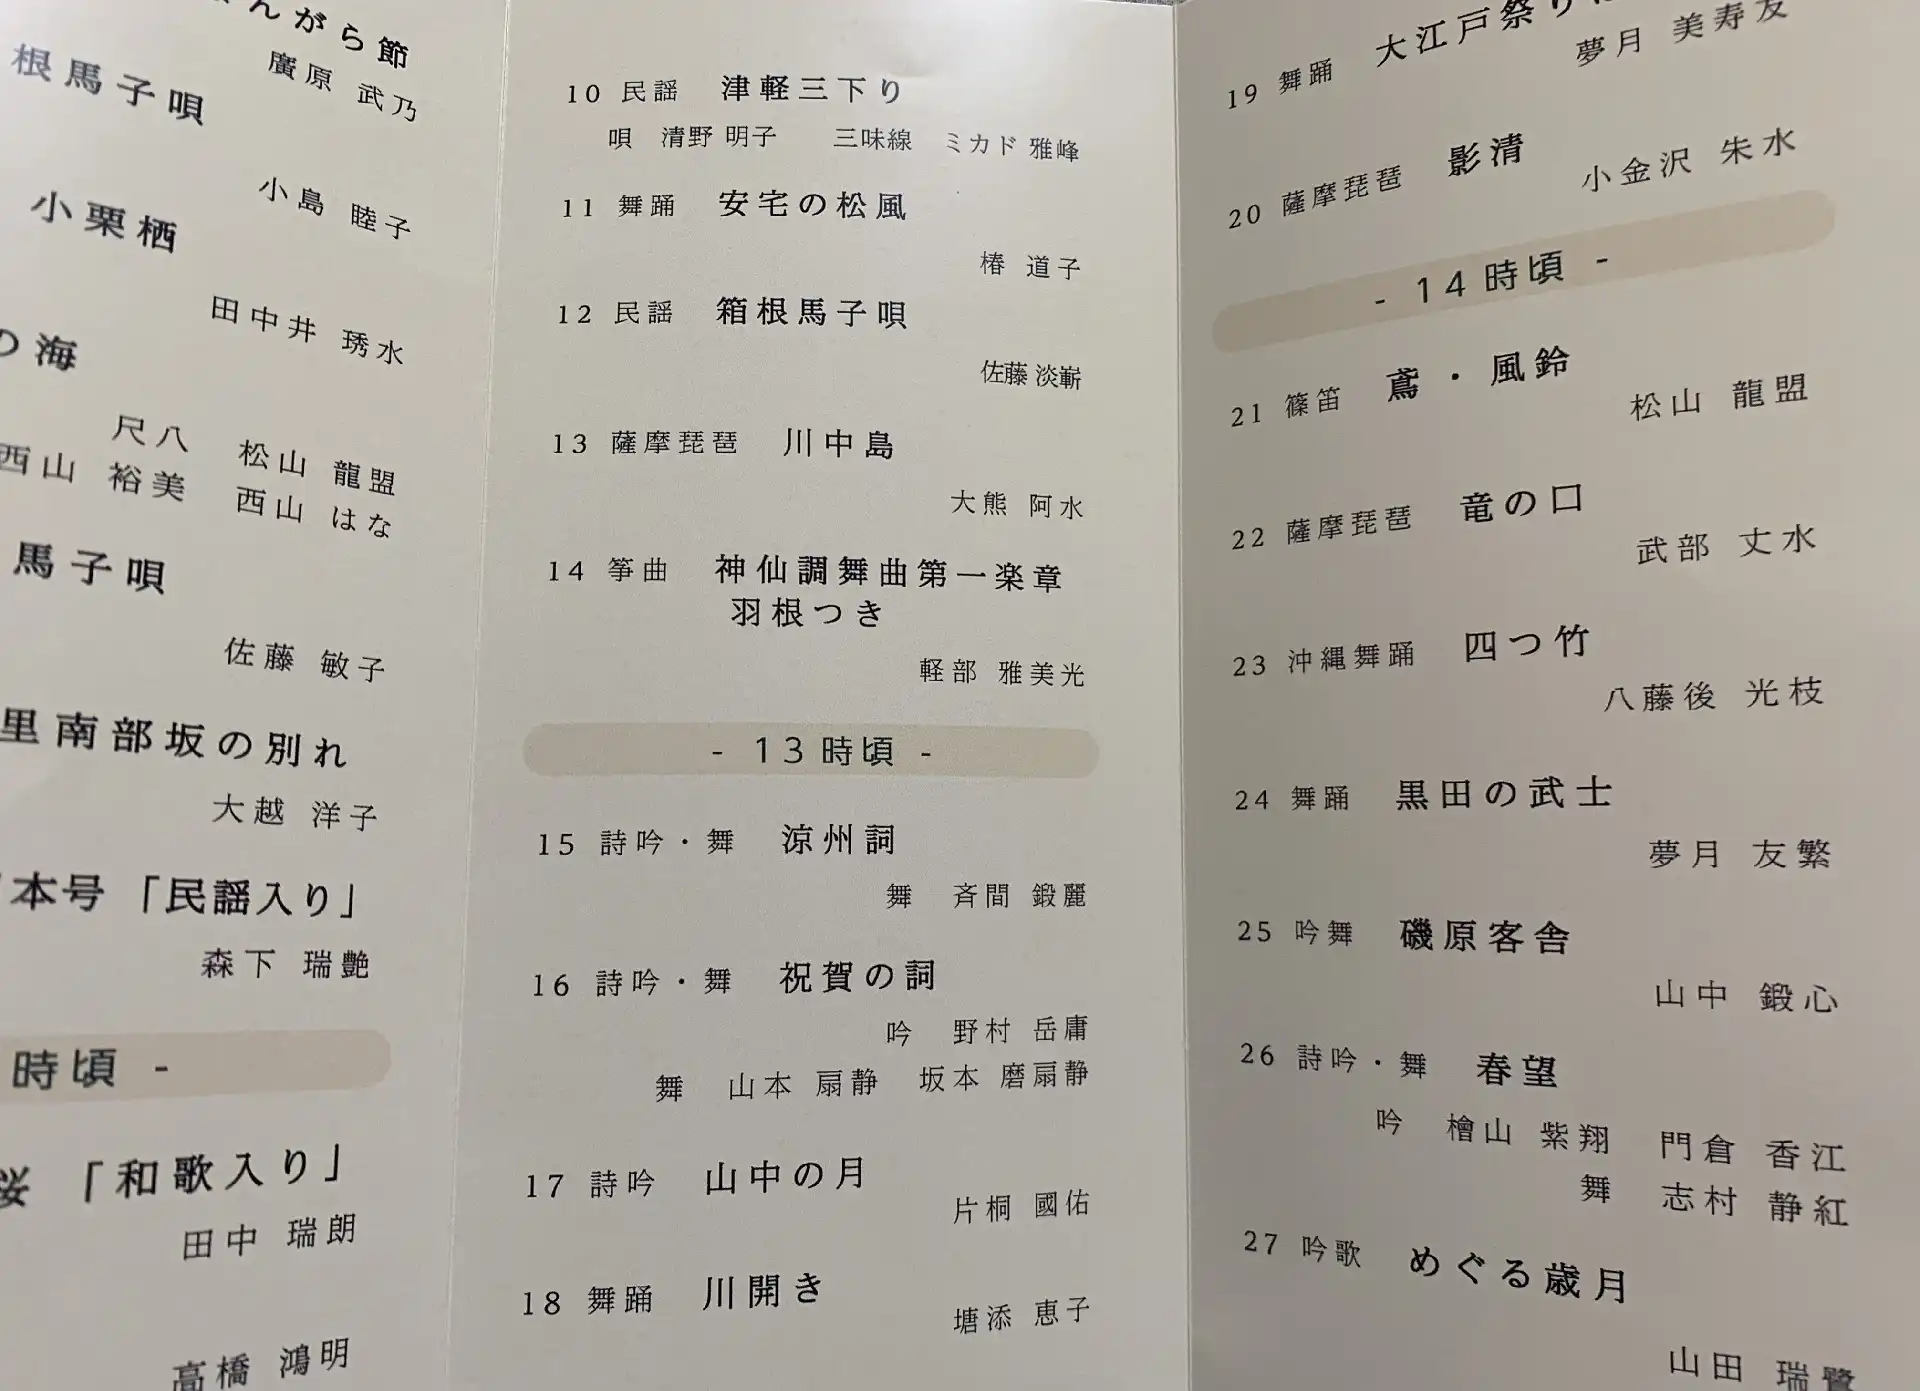 んがら節
廣原 武乃
根馬子唄
小島 睦子
小栗栖
田中井 琇水
の海
尺八 松山 龍盟
西山 裕美 西山 はな
馬子唄
佐藤 敏子
里南部坂の別れ
大越 洋子
本号「民謡入り」
森下 瑞艶
時頃 -
桜「和歌入り」
田中 瑞朗
高橋 鴻明
10 民謡 津軽三下り
唄 清野 明子 三味線 ミカド 雅峰
11 舞踊 安宅の松風
椿 道子
12 民謡 箱根馬子唄
佐藤 淡嶄
13 薩摩琵琶 川中島
大熊 阿水
14 箏曲 神仙調舞曲第一楽章
羽根つき
軽部 雅美光
- 13時頃 -
15 詩吟・舞 涼州詞
舞 斉間 鍛麗
16 詩吟・舞 祝賀の詞
吟 野村 岳庸
舞 山本 扇静 坂本 磨扇静
17 詩吟 山中の月
片桐 國佑
18 舞踊 川開き
塘添 恵子
19 舞踊 大江戸祭り
夢月 美寿友
20 薩摩琵琶 影清
小金沢 朱水
- 14時頃 -
21 篠笛 鳶・風鈴
松山 龍盟
22 薩摩琵琶 竜の口
武部 丈水
23 沖縄舞踊 四つ竹
八藤後 光枝
24 舞踊 黒田の武士
夢月 友繁
25 吟舞 磯原客舎
山中 鍛心
26 詩吟・舞 春望
吟 檜山 紫翔 門倉 香江
舞 志村 静紅
27 吟歌 めぐる歳月
山田 瑞鷺